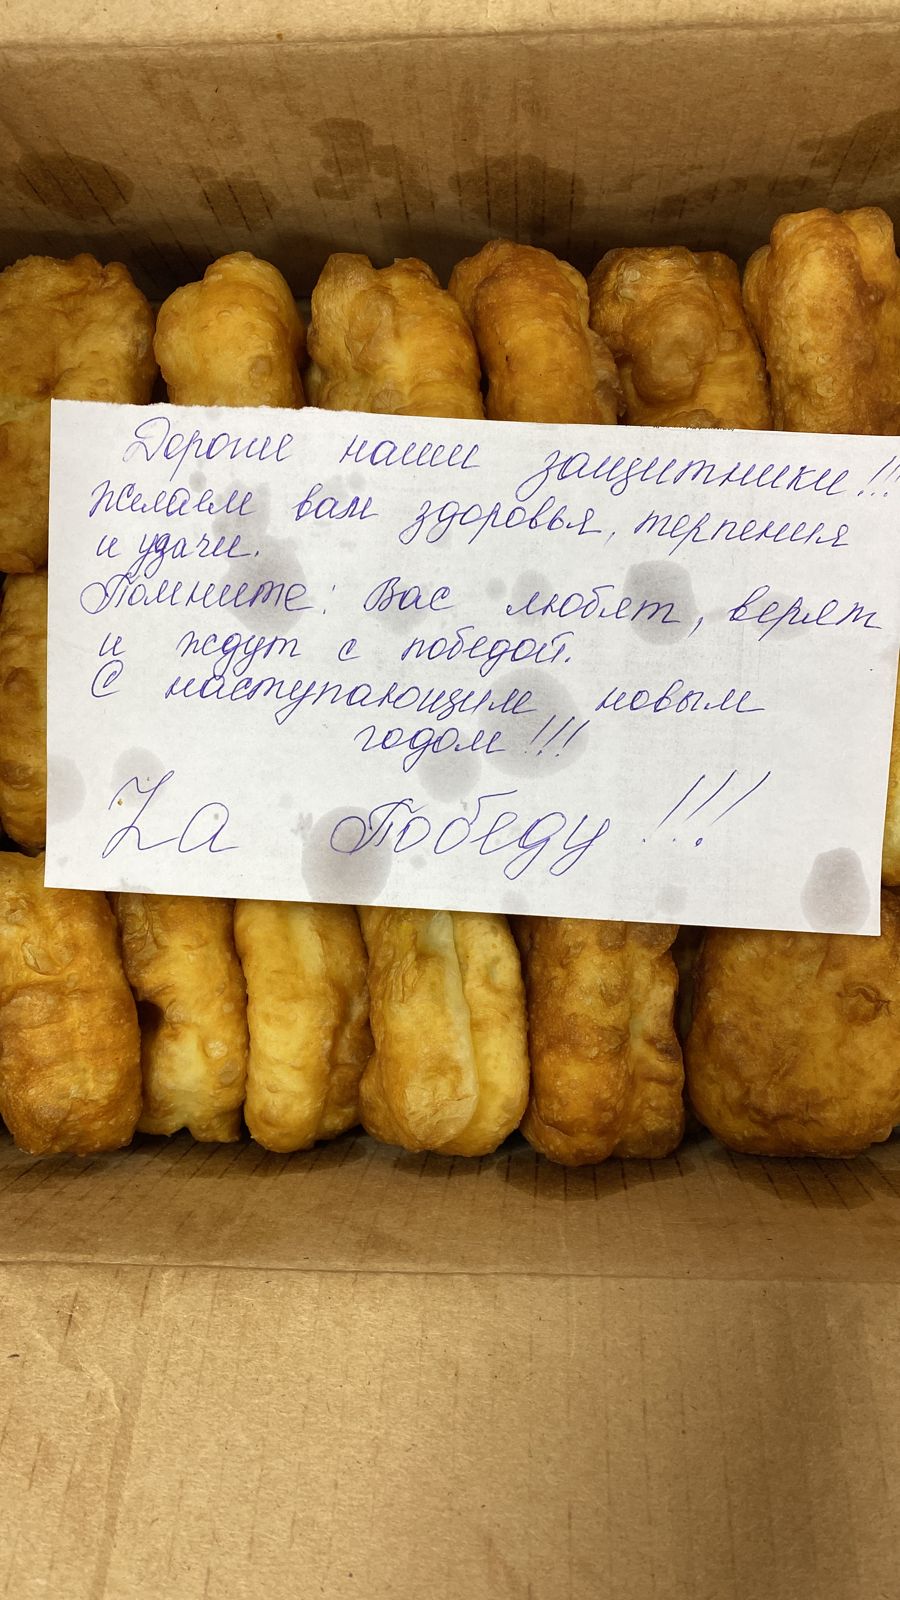 Дорогие наши защитники!!!
желаем вам здоровья, терпения
и удачи.
Помните: Вас любят, верят
и ждут с победой.
С наступающим новым
годом!!!
Zа Победу!!!